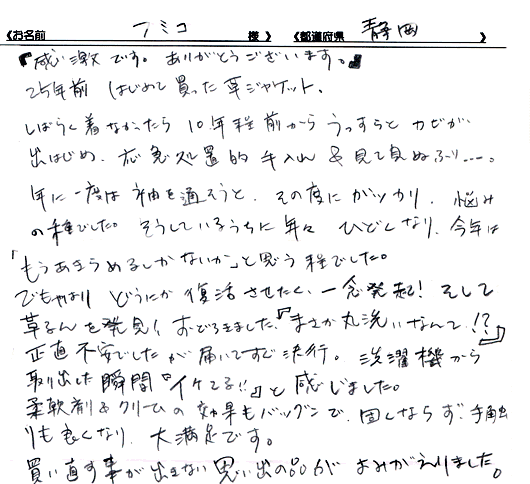 《お名前 フミコ 様》《都道府県 静岡 》
『感激です。ありがとうございます。』
25年前 はじめて買った革ジャケット。
しばらく着なかったら10年程前からうっすらとカビが
出はじめ、応急処置的手入れ&見て見ぬふり…。
年に一度は袖を通そうと、その度にガッカリ、悩み
の種でした。そうしているうちに年々ひどくなり、今年は
「もうあきらめるしかないか」と思う程でした。
でもやはりどうにか復活させたく、一念発起!そして
革るんを発見!おどろきました。『まさか丸洗いなんて!?』
正直不安でしたが届いてすぐ決行。洗濯機から
取り出した瞬間『イケてる!!』と感じました。
柔軟剤&クリームの効果もバツグンで、固くならず、手触
りも良くなり、大満足です。
買い直す事が出来ない思い出の品がよみがえりました。